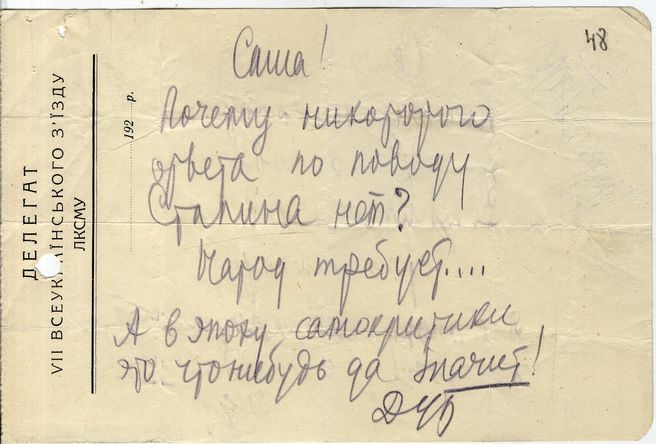 48
ДЕЛЕГАТ
VII ВСЕУКРАЇНСЬКОГО З'ЇЗДУ
ЛКСМУ
192 р.
Саша!
Почему никоторого
ответа по поводу
Сталина нет?
Народ требует....
А в эпоху самокритики
это что нибудь да значит!
ДУБ